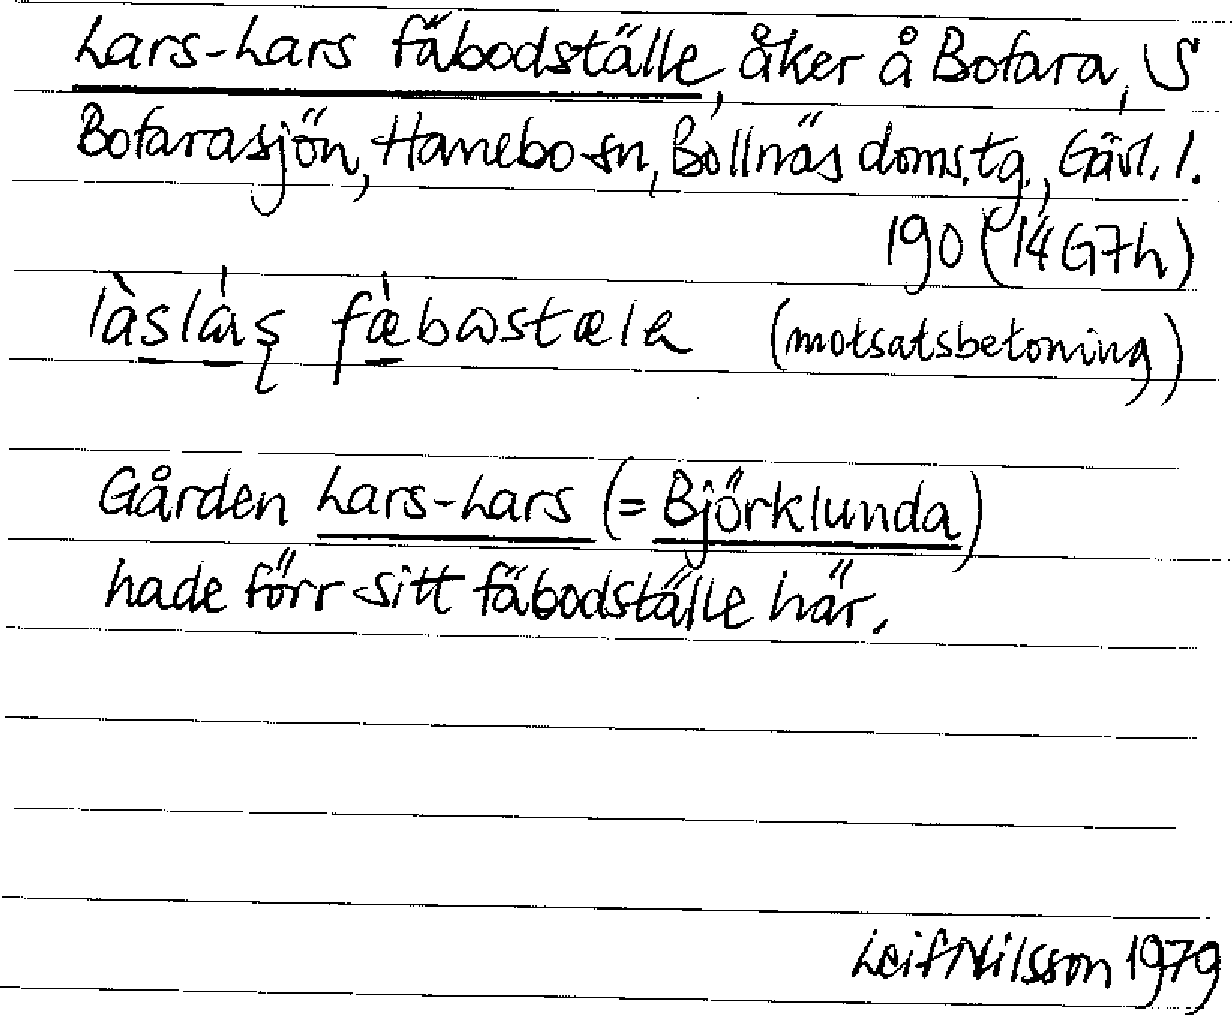 Lars-Lars fäbodställe, åker å Bofara, S
Bofarasjön, Hanebo sn, Bollnäs doms.tg., Gävl. l.
190 (14G7h)
làslás̨ fæ̀bωstælə (motsatsbetoning)
Gården Lars-Lars (= Björklunda)
hade förr sitt fäbodställe här.
Leif Nilsson 1979